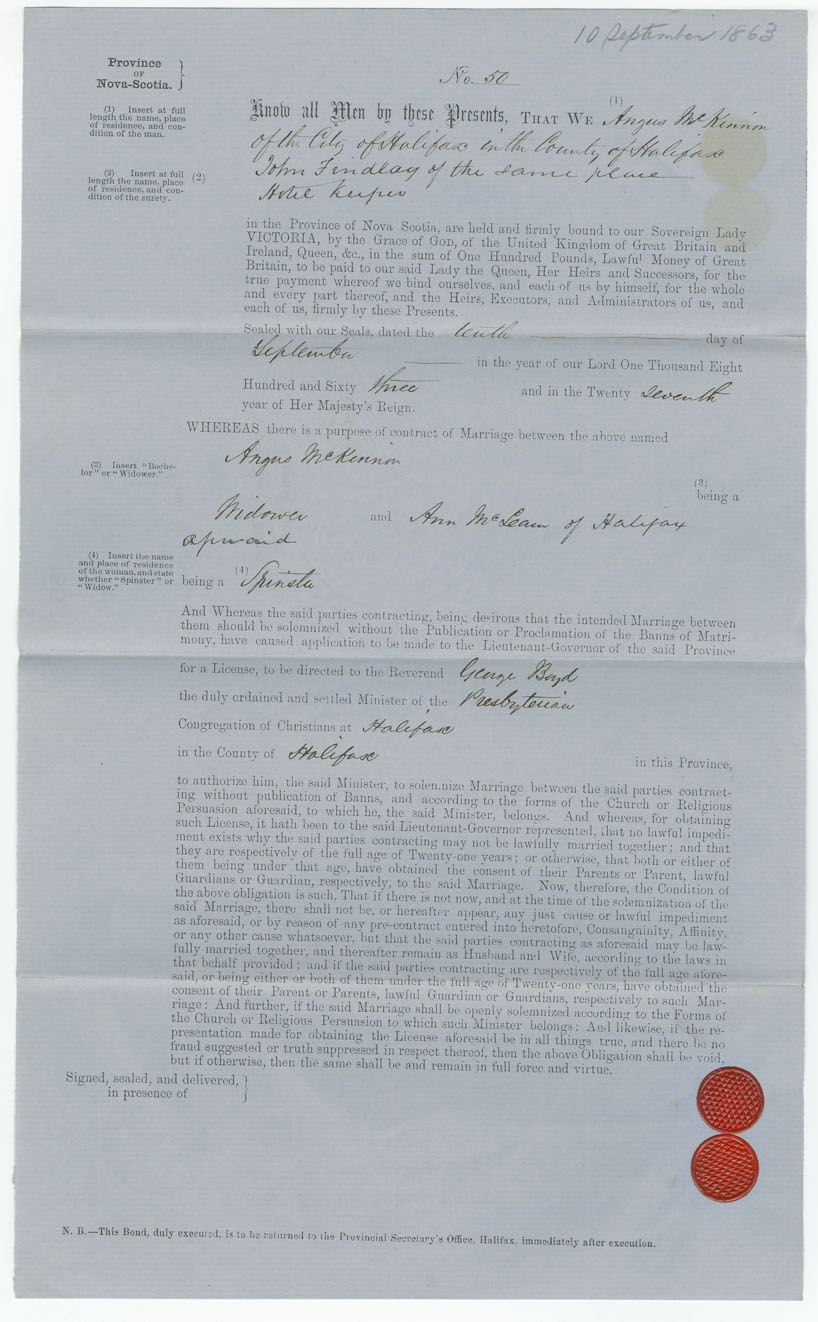 10 September 1863
Province
OF
Nova-Scotia.
No. 50
(1) Insert at full
length the name, place
of residence, and con-
dition of the man.
(1)
Know all Men by these Presents, THAT WE Angus McKinnon
of the City of Halifax in the County of Halifax
(2) Insert at full
length the name, place
of residence, and con-
dition of the surety.
(2)
John Findlay of the same place
Hotel Keeper
in the Province of Nova Scotia, are held and firmly bound to our Sovereign Lady
VICTORIA, by the Grace of God, of the United Kingdom of Great Britain and
Ireland, Queen, &c., in the sum of One Hundred Pounds, Lawful Money of Great
Britain, to be paid to our said Lady the Queen, Her Heirs and Successors, for the
true payment whereof we bind ourselves, and each of us by himself, for the whole
and every part thereof, and the Heirs, Executors, and Administrators of us, and
each of us, firmly by these Presents.
Sealed with our Seals, dated the tenth day of
September in the year of our Lord One Thousand Eight
Hundred and Sixty three and in the Twenty seventh
year of Her Majesty's Reign.
WHEREAS there is a purpose of contract of Marriage between the above named
Angus McKinnon
(3) Insert "Bache-
lor" or "Widower."
(3)
being a
Widower and Ann McLean of Halifax
(4) Insert the name
and place of residence
of the woman, and state
whether "Spinster" or
"Widow."
being a (4) Spinster
And Whereas the said parties contracting, being desirous that the intended Marriage between
them should be solemnized without the Publication or Proclamation of the Banns of Matri-
mony, have caused application to be made to the Lieutenant-Governor of the said Province
for a License, to be directed to the Reverend George Boyd
the duly ordained and settled Minister of the Presbyterian
Congregation of Christians at Halifax
in the County of Halifax in this Province,
to authorize him, the said Minister, to solemnize Marriage between the said parties contract-
ing without publication of Banns, and according to the forms of the Church or Religious
Persuasion aforesaid, to which he, the said Minister, belongs. And whereas, for obtaining
such License, it hath been to the said Lieutenant-Governor represented, that no lawful impedi-
ment exists why the said parties contracting may not be lawfully married together; and that
they are respectively of the full age of Twenty-one years; or otherwise, that both or either of
them being under that age, have obtained the consent of their Parents or Parent, lawful
Guardians or Guardian, respectively, to the said Marriage. Now, therefore, the Condition of
the above obligation is such, That if there is not now, and at the time of the solemnization of the
said Marriage, there shall not be, or hereafter appear, any just cause or lawful impediment
as aforesaid, or by reason of any pre-contract entered into heretofore, Consanguinity, Affinity,
or any other cause whatsoever, but that the said parties contracting as aforesaid may be law-
fully married together, and thereafter remain as Husband and Wife, according to the laws in
that behalf provided; and if the said parties contracting are respectively of the full age afore-
said, or being either or both of them under the full age of Twenty-one years, have obtained the
consent of their Parent or Parents, lawful Guardian or Guardians, respectively to such Mar-
riage: And further, if the said Marriage shall be openly solemnized according to the Forms of
the Church or Religious Persuasion to which such Minister belongs: And likewise, if the re-
presentation made for obtaining the License aforesaid be in all things true, and there be no
fraud suggested or truth suppressed in respect thereof, then the above Obligation shall be void,
but if otherwise, then the same shall be and remain in full force and virtue.
Signed, sealed, and delivered,
in presence of
N. B.—This Bond, duly executed, is to be returned to the Provincial Secretary's Office, Halifax, immediately after execution.